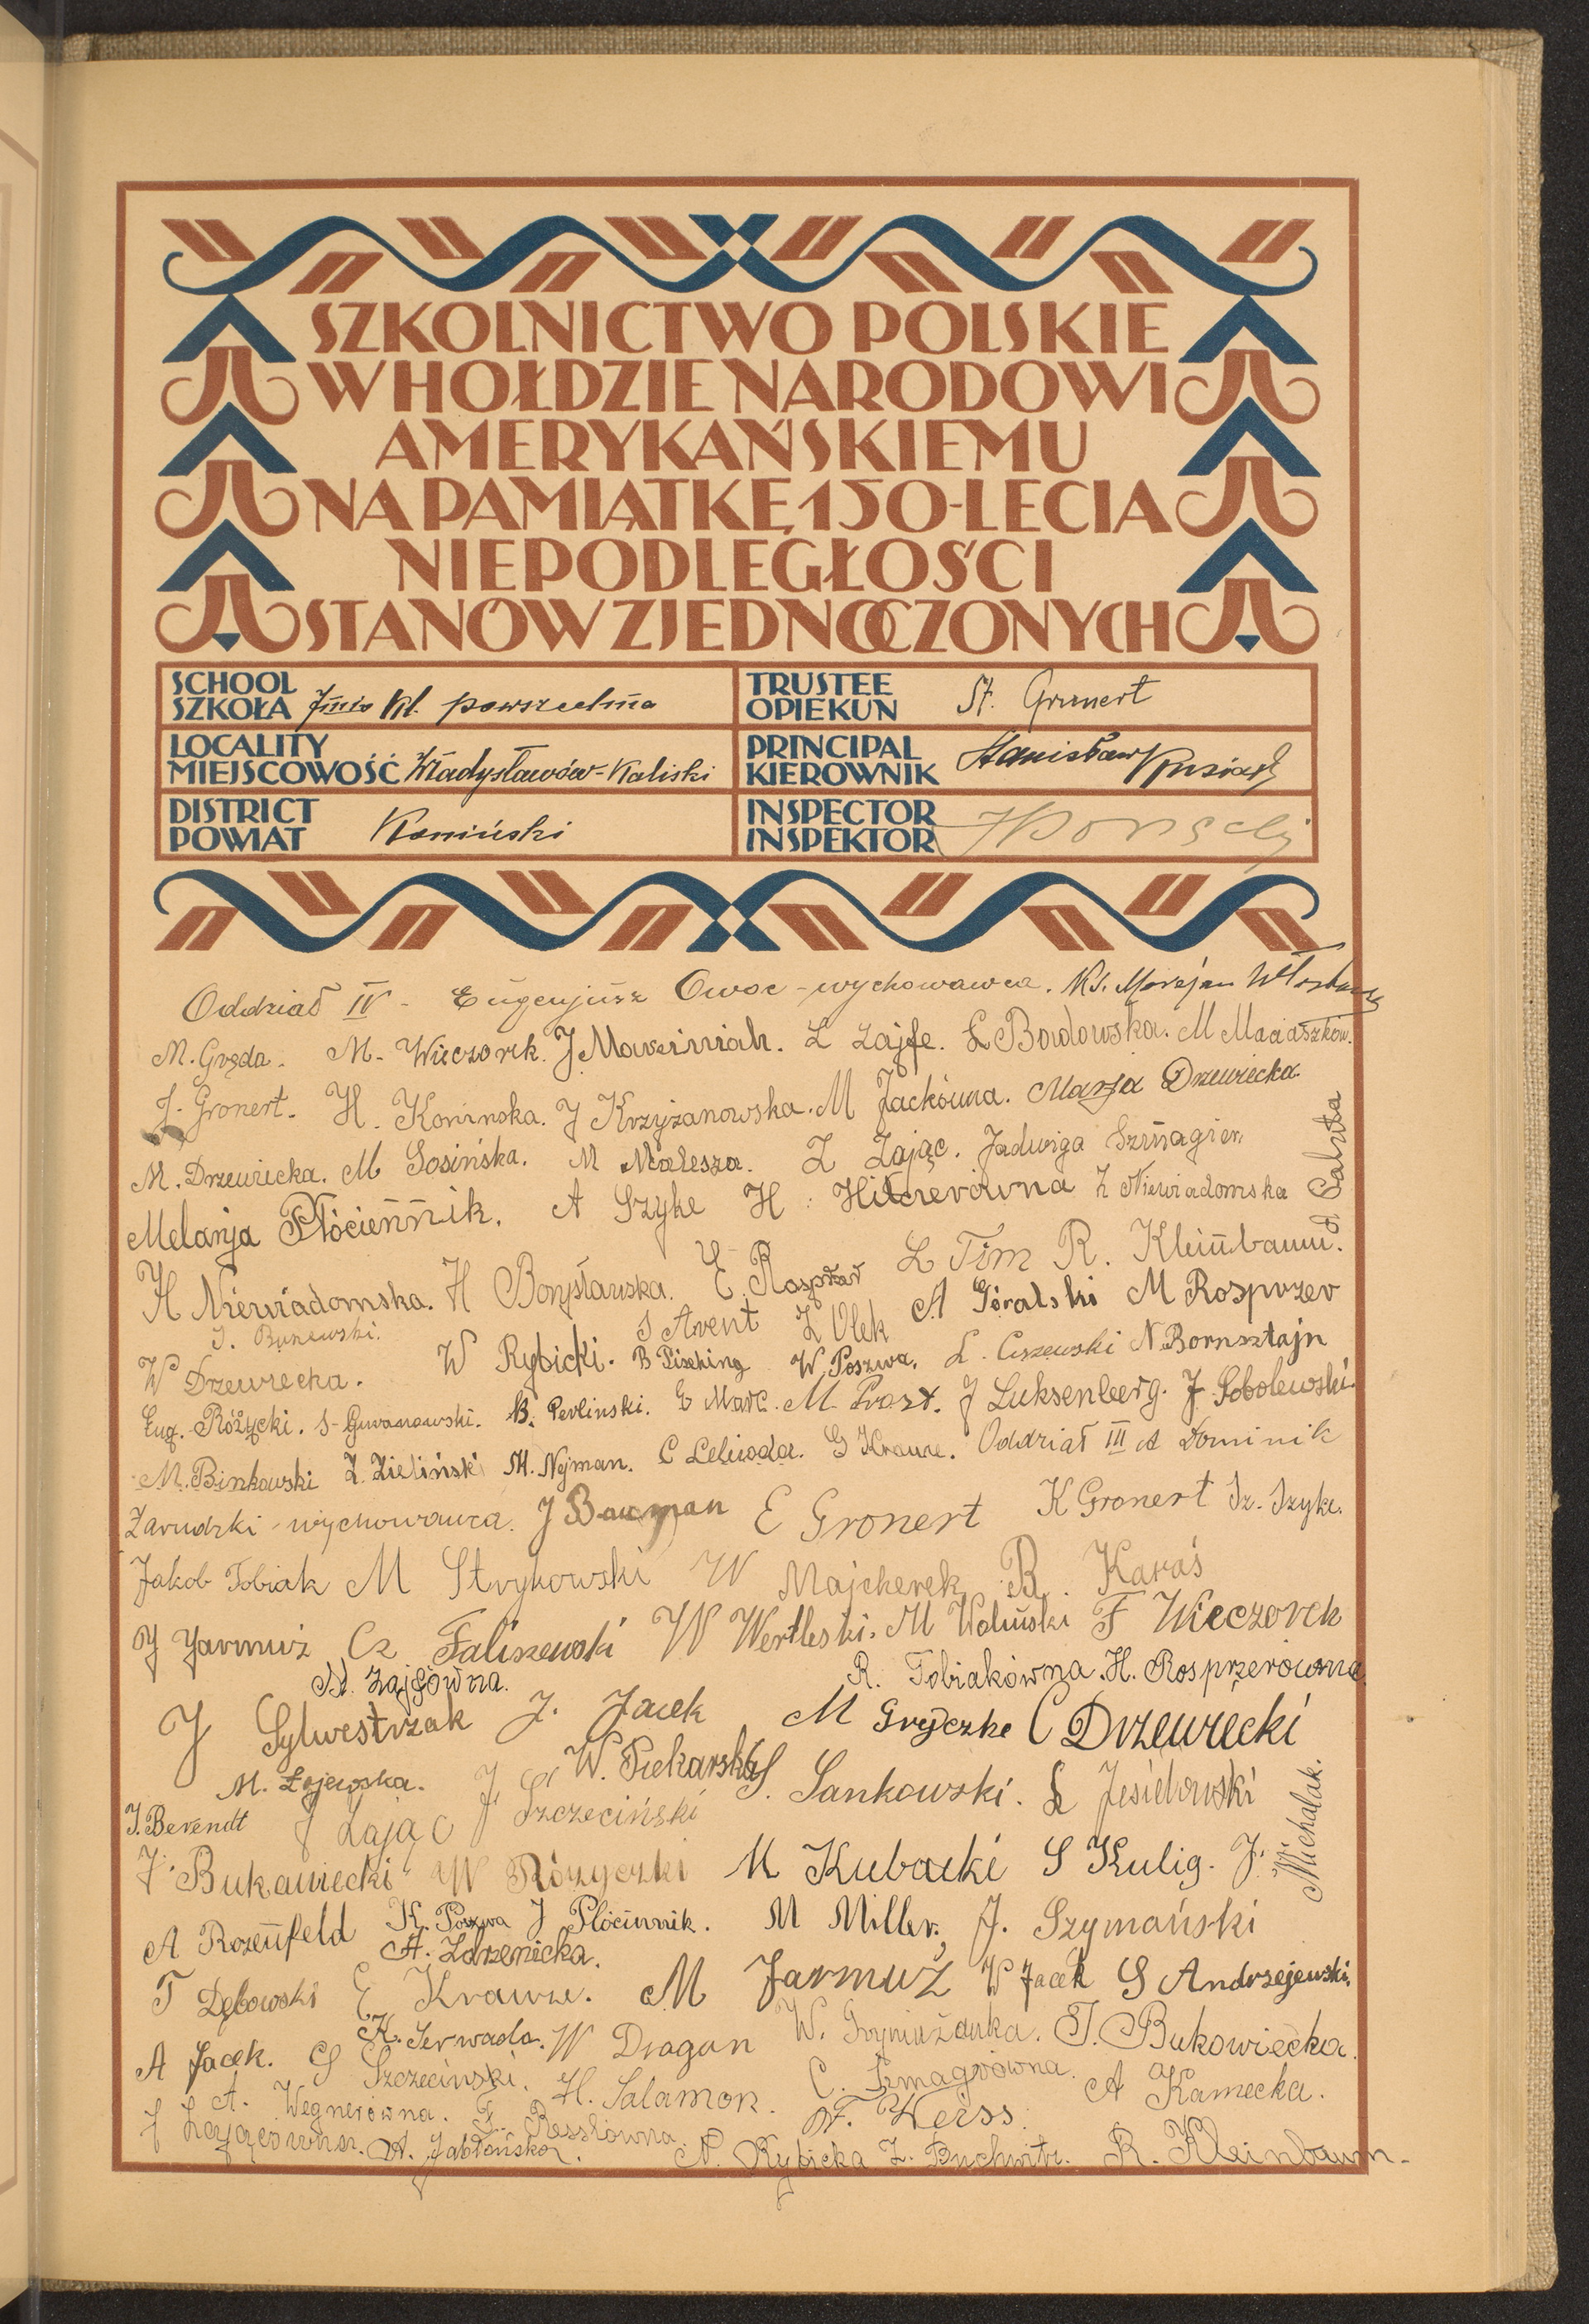 SZKOLNICTWO POLSKIE
W HOŁDZIE NARODOWI
AMERYKAŃSKIEMU
NA PAMIĄTKĘ 150-LECIA
NIEPODLEGŁOŚCI
STANÓW ZJEDNOCZONYCH
SCHOOL
SZKOŁA 7mio kl. powszechna
TRUSTEE
OPIEKUN St. Gronert
LOCALITY
MIEJSCOWOŚĆ Władysławów-Kaliski
PRINCIPAL
KIEROWNIK Stanisław
DISTRICT
POWIAT Koniński
INSPECTOR
INSPEKTOR
Oddział IV - Eugenjusz Owoc - wychowawca. Ks. Marejan
M. Gręda. M. Wieczorek. J Marciniak. Z Zajfe. Ł Bordowska. M Maciaszków.
J. Gronert. H. Koninska. J Krzyżanowska. M Jackówna. Marja Drzewiecka
M. Drzewiecka. M Sosińska. M Malesza. Z Zając. Jadwiga Szmagier.
Melanja Płóciennik. A Szyke H. Z Niewiadomska
A Salwta
H Niewiadomska. H Borysławska. E. Z Tim R. Kleinbaum.
S Arent Z Olek A Góralski M Rosprzer
W Drzewiecka. W Rybicki. B Pisching W. Poszwa. L. Ciszewski N. Bornsztajn
Eug. Różycki. B. Perlinski. E Marc. M. Prost. J Luksenberg. J Sobolewski.
M. Binkowski Z. Zieliński M. Nyman. C Leliwoda. G Krauze. Oddział III A Dominik
Zarudzki - wychowawca. J Bauman E Gronert K Gronert Sz. Szyke.
Jakob Tobiak M Strykowski W Majcherek R. Karaś
J Jarmuż Cz Faliszewski W Wertleski. M Woliński F Wieczorek
N. Zajfówna. R. Tobiakówna. H. Rosprzerówna
J Sylwestrzak J. Jacek M Gryczke C Drzewiecki
M. Łojewska. W. Piekarska S. Sankowski. L Jesiołowski
J. Berendt J Zając J Szczeciński
F. Bukawiecki W Różyczki M Kubacki S Kulig. J. Michalak.
A Rozenfeld K. Poszwa J Płóciennik. M Miller, J. Szymański
A. Zdrzenicka.
T Dębowski E Krauze. M Jarmuż W Jacek S Andrzejewski.
A Jacek. S Szczeciński. K. Serwada. W Dragan W. Grymużanka. T. Bukowiecka.
A. Wegnerówna. F. Resslówna. H. Salamon. C. Szmagrówna. A Kamecka.
J Zającówna. A. Jabłońska. F. Weiss.
N. Rybicka Z. Buchwitz. R. Kleinbaum.